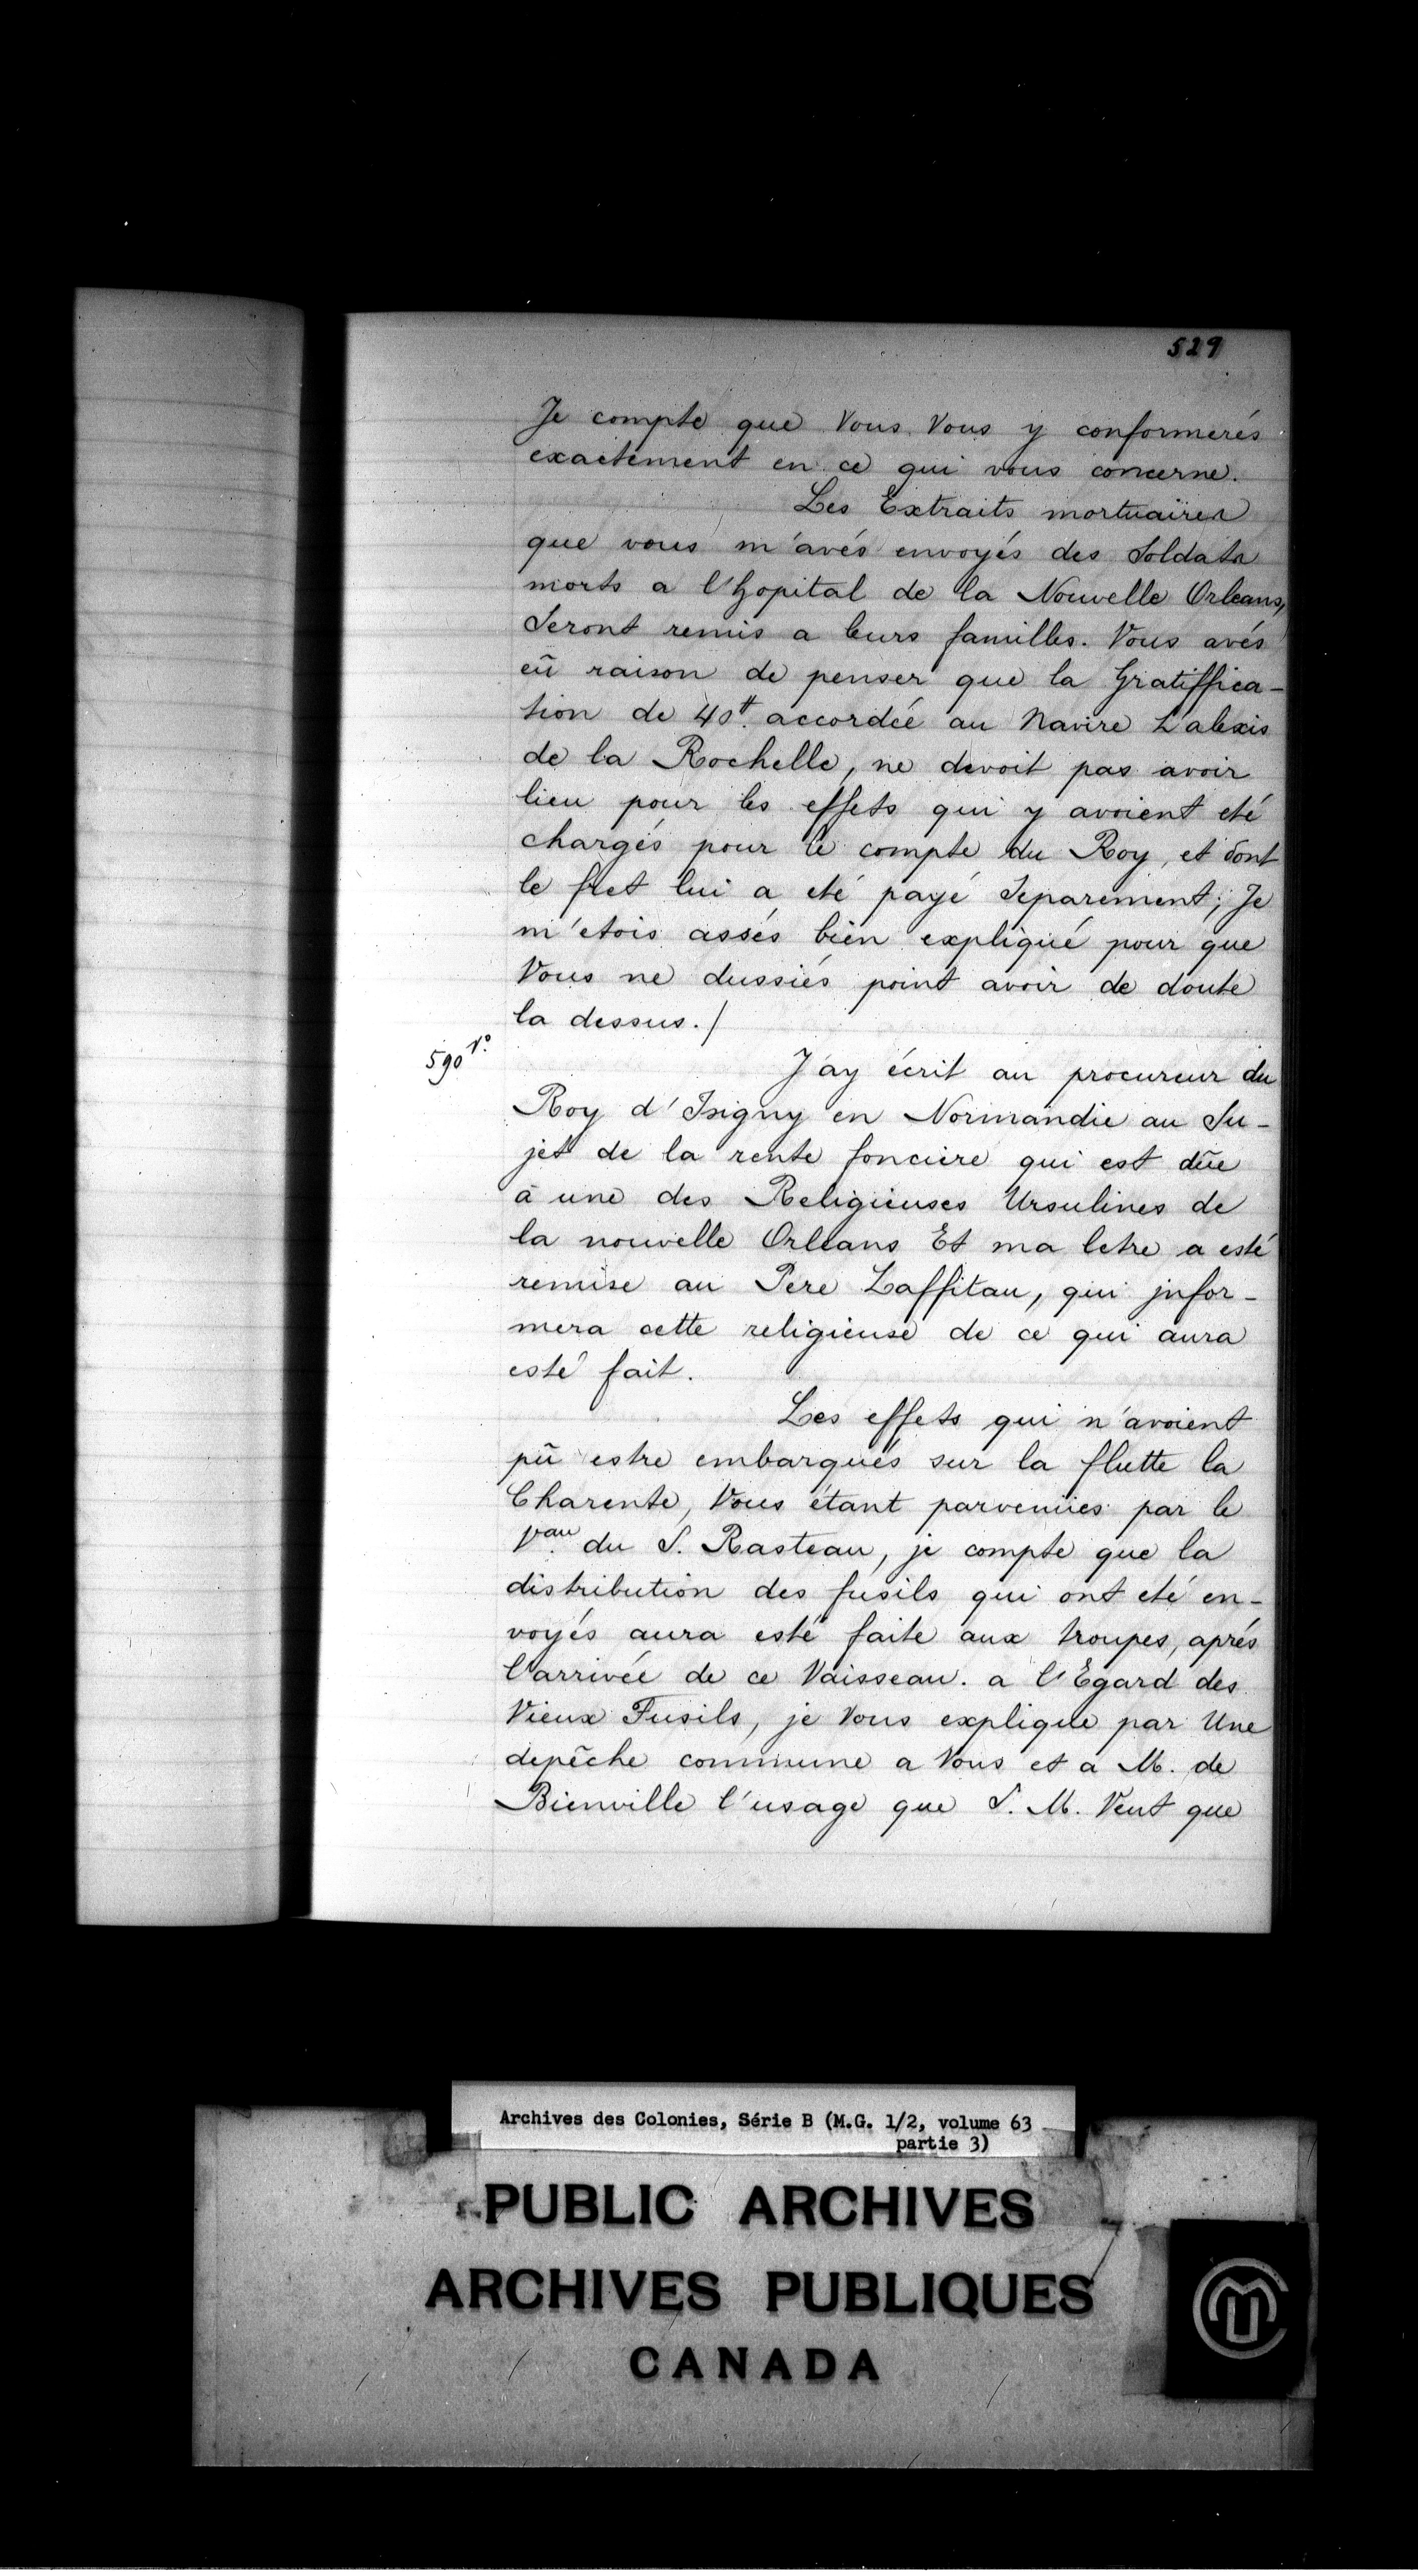 529
Je compte que Vous Vous y conformerés
exactement en ce qui vous concerne.
Les Extraits mortuaires
que vous m'avés envoyés des Soldats
morts a l'hopital de la Nouvelle Orleans,
Seront remis a leurs familles. Vous avés
eû raison de penser que la Gratiffica-
tion de 40# accordée au Navire L'alexis
de la Rochelle, ne devoit pas avoir
lieu pour les effets qui y avoient eté
chargés pour le compte du Roy, et dont
le fret lui a eté payé Separement; Je
m'etois assés bien expliqué pour que
Vous ne dussiés point avoir de doute
la dessus./
590 vº
J'ay écrit au procureur du
Roy d'Isigny en Normandie au Su-
jet de la rente fonciere qui est dûe
à une des Religieuses Ursulines de
la nouvelle Orleans Et ma letre a esté
remise au Pere Laffitau, qui jnfor-
mera cette religieuse de ce qui aura
esté fait.
Les effets qui n'avoient
pû estre embarqués sur la flutte la
Charente, Vous étant parvenües par le
Vau du S. Rasteau, je compte que la
distribution des fusils qui ont eté en-
voyés aura esté faite aux troupes, aprés
l'arrivée de ce Vaisseau. a l'Egard des
Vieux Fusils, je Vous explique par Une
depêche commune a Vous et a M. de
Bienville l'usage que S. M. Veut que
Archives des Colonies, Série B (M.G. 1/2, volume 63
partie 3)
PUBLIC ARCHIVES
ARCHIVES PUBLIQUES
CANADA